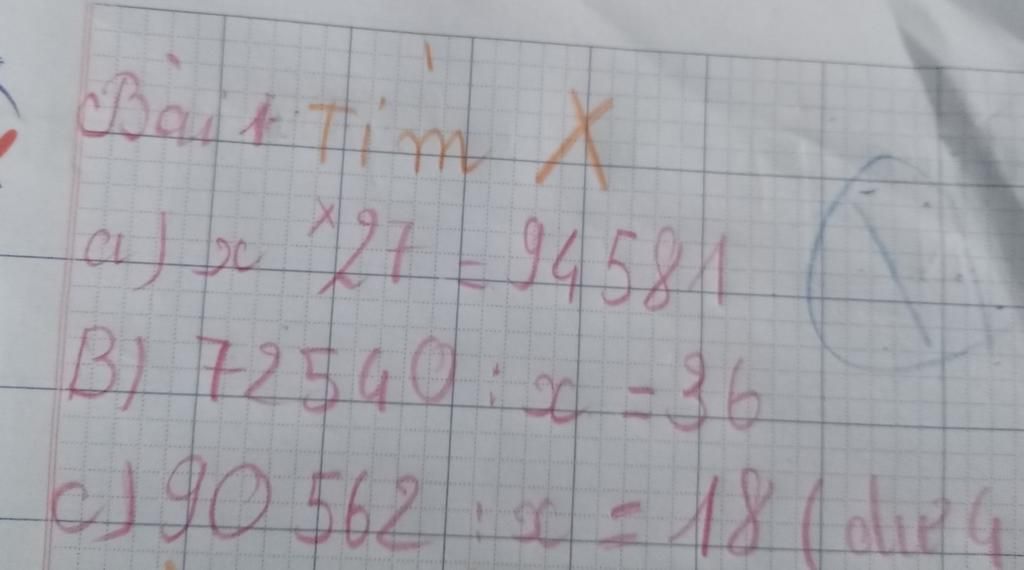 Bài 1 Tìm X
a) x × 27 = 94581
B) 72540 : x = 36
c) 90 562 : x = 18 (dư 4